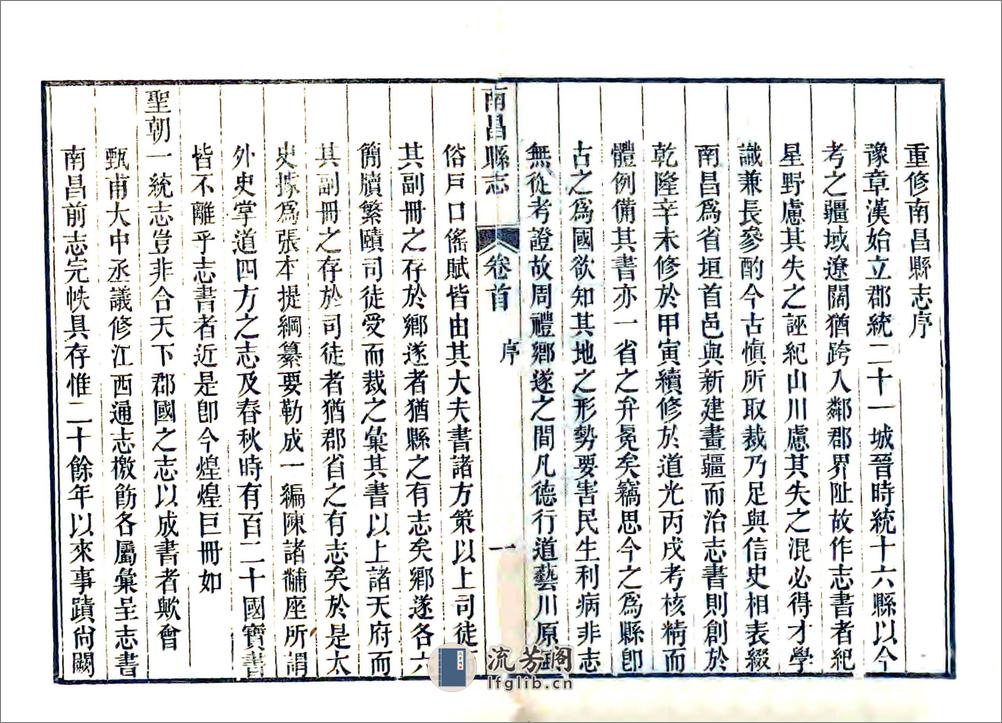 重修南昌縣志序
豫章漢始立郡統二十一城晉時統十六縣以今
考之疆域遼闊猶跨入鄰郡界阯故作志書者紀
星野慮其失之誣紀山川慮其失之混必得才學
識兼長參酌今古慎所取裁乃足與信史相表綴
南昌爲省垣首邑與新建畫疆而治志書則創於
乾隆辛未修於甲寅續修於道光丙戌考核精而
體例備其書亦一省之弁冕矣竊思今之爲縣卽
古之爲國欲知其地之形勢要害民生利病非志
無從考證故周禮鄉遂之間凡德行道藝川原
南昌縣志
卷首
序
一
俗戸口傜賦皆由其大夫書諸方策以上司徒
其副冊之存於鄉遂者猶縣之有志矣鄉遂各六
簡牘繁賾司徒受而裁之彙其書以上諸天府而
其副冊之存於司徒者猶郡省之有志矣於是太
史據爲張本提綱纂要勒成一編陳諸黼座所謂
外史掌道四方之志及春秋時有百二十國寶書
皆不離乎志書者近是卽今煌煌巨冊如
聖朝一統志豈非合天下郡國之志以成書者歟會
甄甫大中丞議修江西通志檄飭各屬彙呈志書
南昌前志完帙具存惟二十餘年以來事蹟尙闕
流芳閣
lfglib.cn